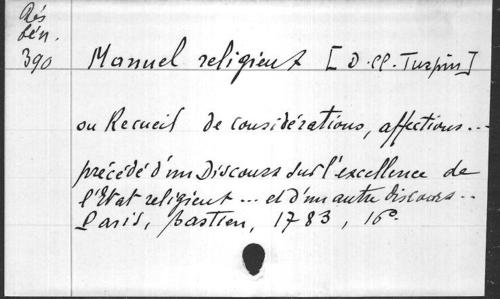 Rés
Gén.
390
Manuel religieux [D. Cl. Turpin]
ou Recueil de considérations, affections...
précédé d'un Discours sur l'excellence de
l'Etat religieux ... et d'un autre discours..
Paris, Bastien, 1783, 16°